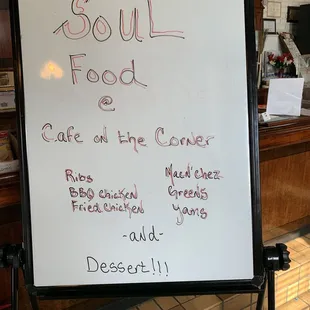 SouL
Food
@
Cafe on the Corner
Ribs
BBQ Chicken
Fried Chicken
Macn'Chez
Greens
Yams
-and-
Dessert!!!